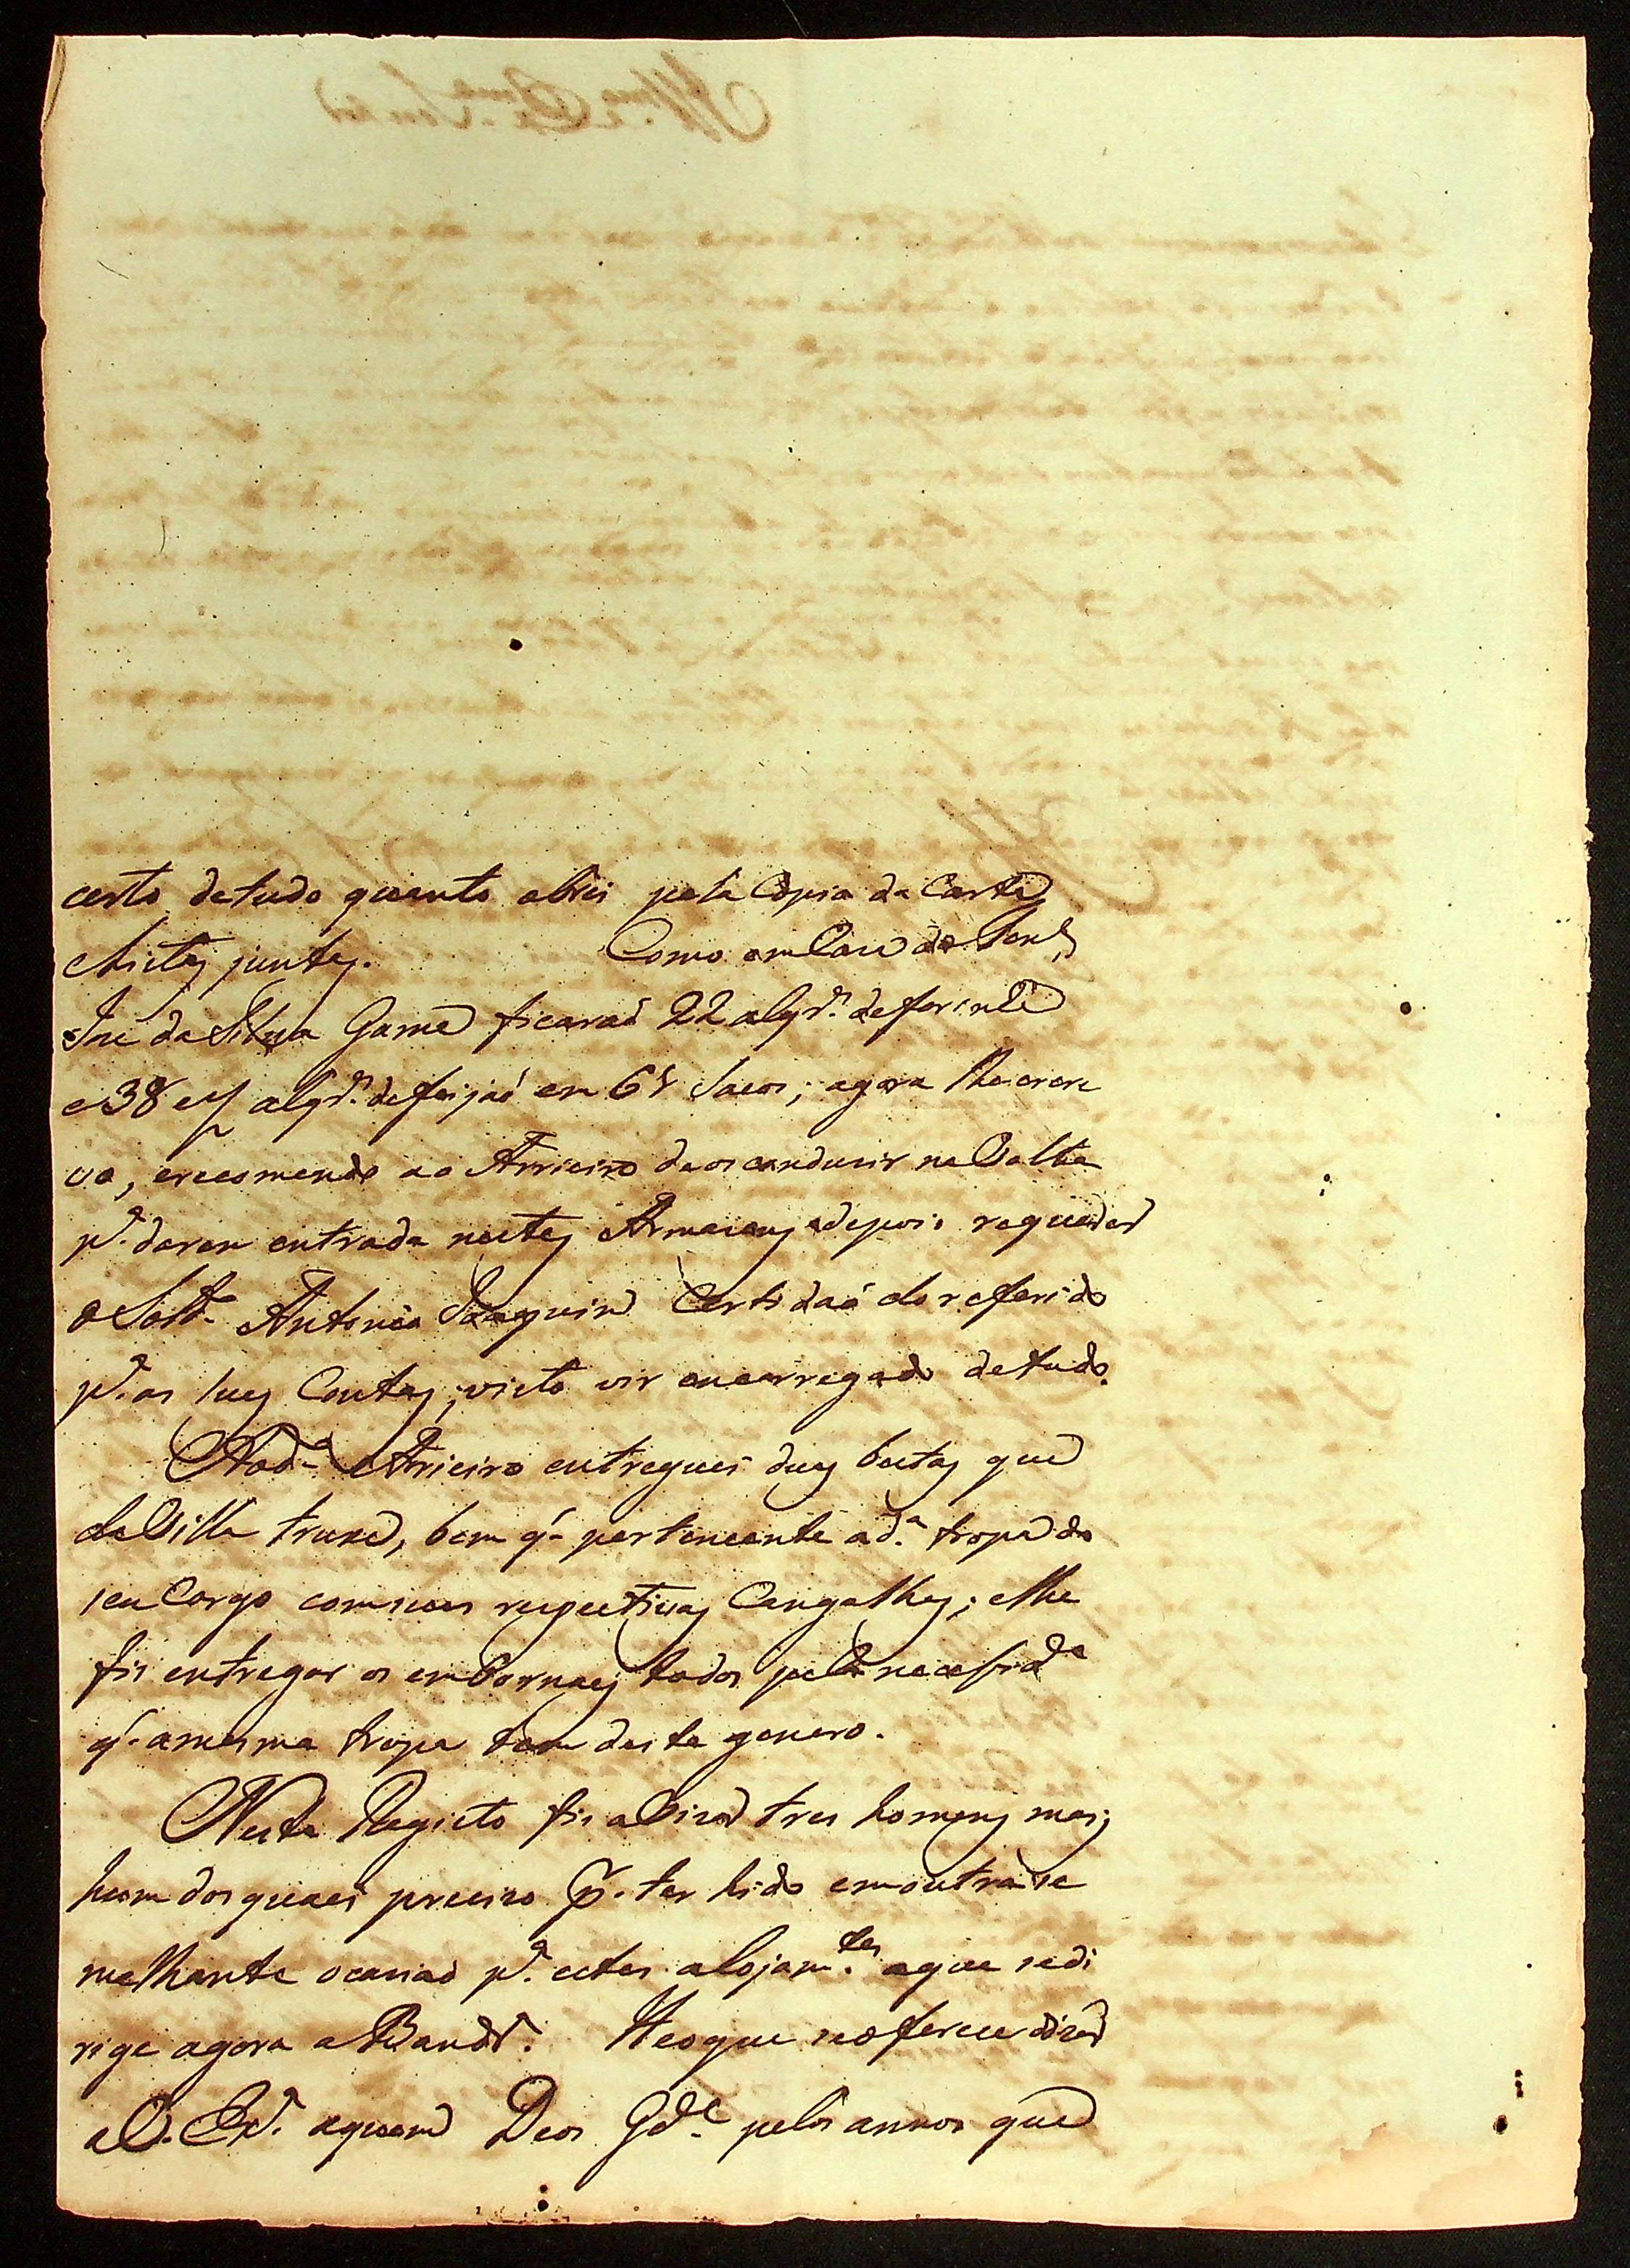 certo detudo quanto obrei pela Copia da Carta,
e listas juntas. Como em Caza do Ten.e
José da Silva Gama ficaraõ 22 alqr.s defarinha
e 38 e 1/2 alqr.s defeijaõ em 68 Sacos; agora lhe escre
vo, erecomendo ao Arrieiro deosconduzir na Volta
p.a darem entrada nestes Armazens edepois requerer
o Sold.o Antonio Joaquim Certidaõ do referido
p.a as suas Contas, visto vir encarregado detudo.
Aod.o Arrieiro entreguei duas bestas que
da Villa truxe, bem q.e pertencente ad.a tropa do
seu Cargo comsuas respectivas Cangalhas; elhe
fis entregar os emBornaes todos pela necessid.e
q.e amesma tropa tem deste genero.
Neste Registo fis alizar tres homens mais;
hum dosquaes precizo p.r ter hido emoutra se
melhante ocasiaõ p.a estes alojam.tos aque sedi
rige agora aBandr.a Heoque seoferece dizer
aV. Ex.a aquem Deos G.de pelos annos que